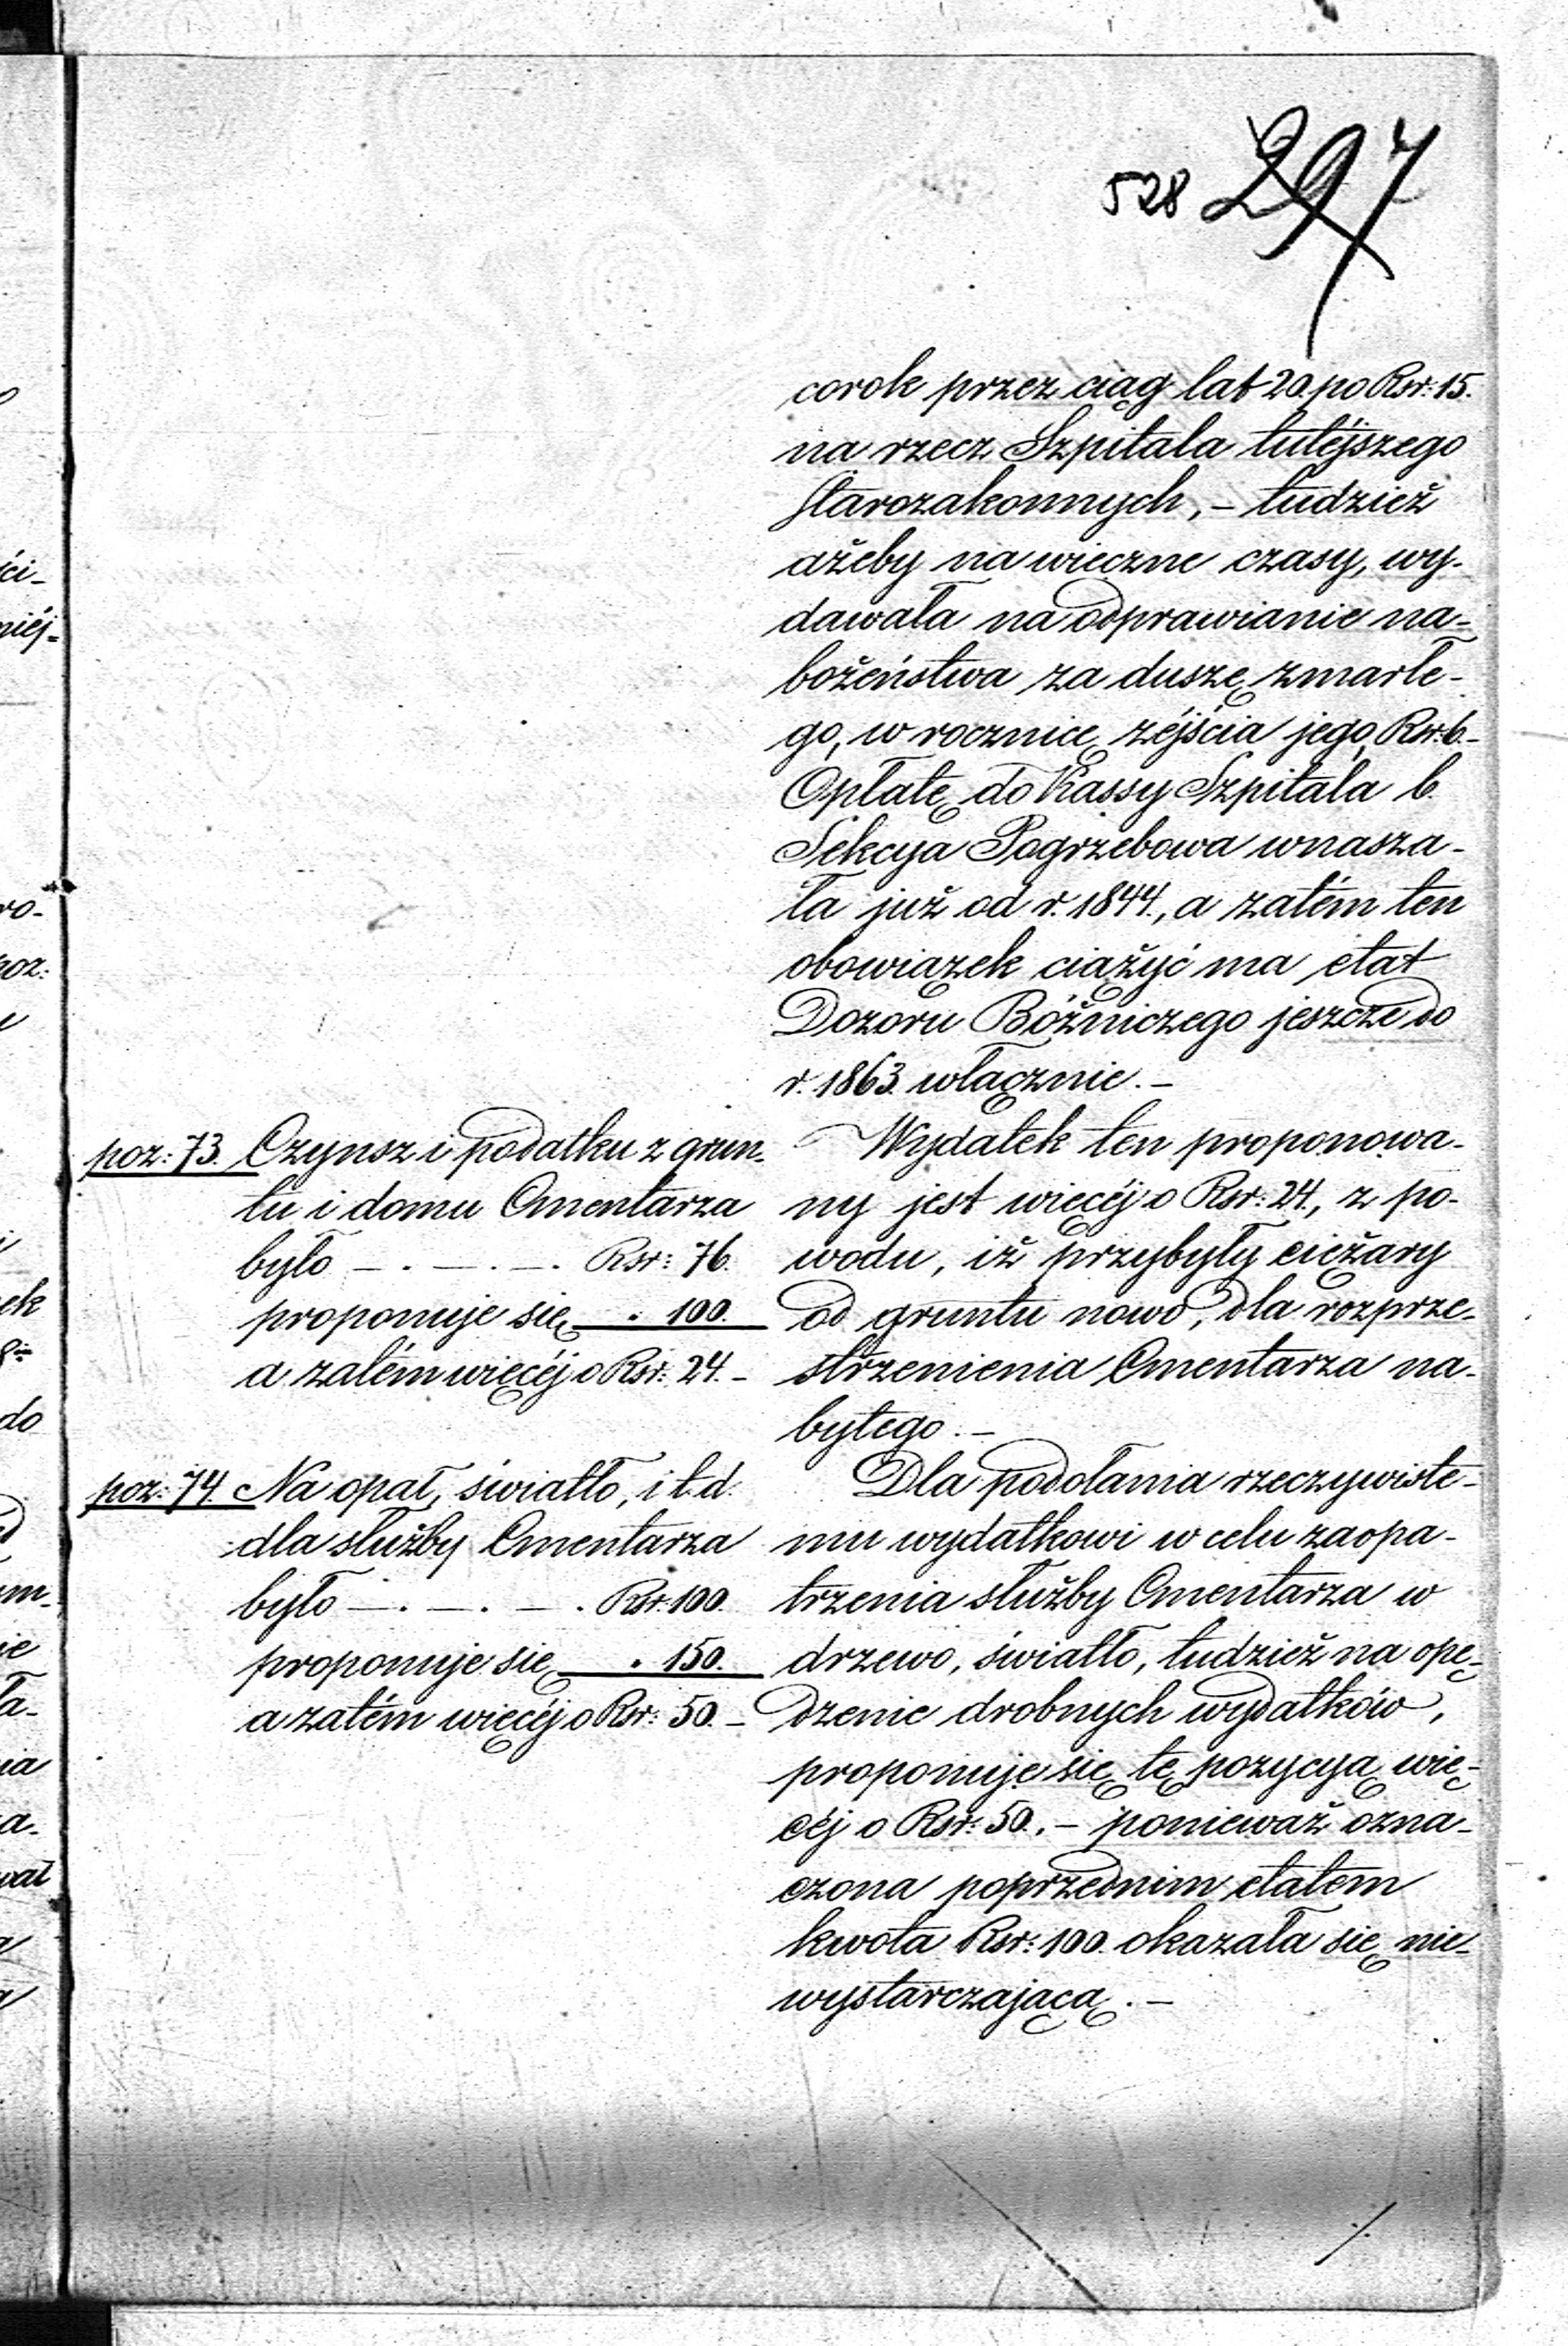 528 297
corok przez ciąg lat 20. po Rsr: 15.
na rzecz Szpitala tutéjszego
Starozakonnych, – tudzież
ażeby na wieczne czasy, wy-
dawała na odprawianie na-
bożeństwa za duszę zmarłe-
go, w rocznicę zéjścia jego, Rsr: 6. –
Opłatę do Kassy Szpitala b.
Sekcya Pogrzebowa wnasza-
ła już od r. 1844., a zatém ten
obowiązek ciążyć ma etat
Dozoru Bóżniczego jeszcze do
r. 1863. włącznie. –
poz: 73. Czynsz i podatku z grun-
tu i domu Cmentarza
było – . – . – . Rsr: 76.
proponuje się „ 100.
a zatém więcéj o Rsr: 24. –
Wydatek ten proponowa-
ny jest więcéj o Rsr: 24., z po-
wodu, iż przybyły ciężary
od gruntu nowo, dla rozprze-
strzenienia Cmentarza na-
bytego. –
poz: 74. Na opał, światło, i t. d.
dla służby Cmentarza
było – . – . – . Rsr: 100.
proponuje się „ 150.
a zatém więcéj o Rsr: 50. –
Dla podołania rzeczywiste-
mu wydatkowi w celu zaopa-
trzenia służby Cmentarza w
drzewo, światło, tudzież na opę-
dzenie drobnych wydatków,
proponuje się tę pozycyą wię-
céj o Rsr: 50., – ponieważ ozna-
czona poprzednim etatem
kwota Rsr: 100. okazała się nie-
wystarczającą. –